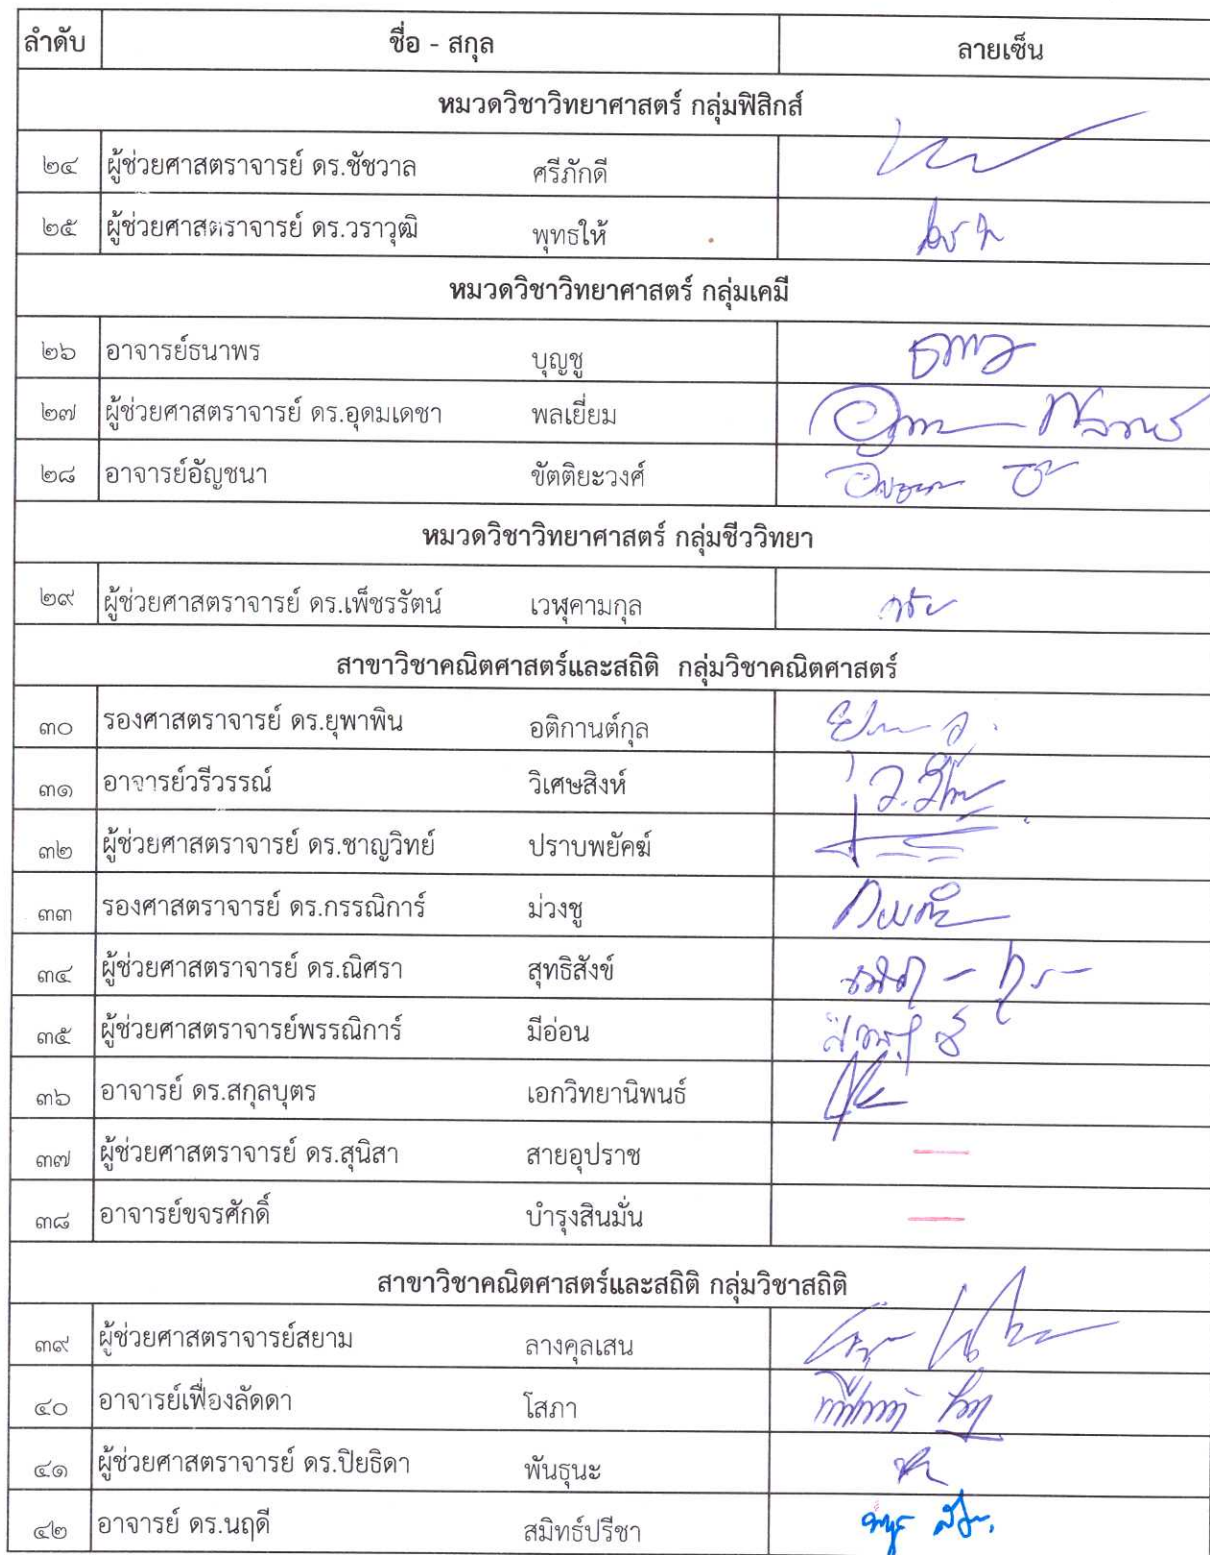 ลำดับ ชื่อ - สกุล ลายเซ็น
หมวดวิชาวิทยาศาสตร์ กลุ่มฟิสิกส์
๒๔ ผู้ช่วยศาสตราจารย์ ดร.ชัชวาล ศรีภักดี
๒๕ ผู้ช่วยศาสตราจารย์ ดร.วราวุฒิ พุทธให้
หมวดวิชาวิทยาศาสตร์ กลุ่มเคมี
๒๖ อาจารย์ธนาพร บุญชู
๒๗ ผู้ช่วยศาสตราจารย์ ดร.อุดมเดชา พลเยี่ยม
๒๘ อาจารย์อัญชนา ขัตติยะวงศ์
หมวดวิชาวิทยาศาสตร์ กลุ่มชีววิทยา
๒๙ ผู้ช่วยศาสตราจารย์ ดร.เพ็ชรรัตน์ เวฬุคามกุล
สาขาวิชาคณิตศาสตร์และสถิติ กลุ่มวิชาคณิตศาสตร์
๓๐ รองศาสตราจารย์ ดร.ยุพาพิน อติกานต์กุล
๓๑ อาจารย์วรีวรรณ์ วิเศษสิงห์
๓๒ ผู้ช่วยศาสตราจารย์ ดร.ชาญวิทย์ ปราบพยัคฆ์
๓๓ รองศาสตราจารย์ ดร.กรรณิการ์ ม่วงชู
๓๔ ผู้ช่วยศาสตราจารย์ ดร.ณิศรา สุทธิสังข์
๓๕ ผู้ช่วยศาสตราจารย์พรรณิการ์ มีอ่อน
๓๖ อาจารย์ ดร.สกุลบุตร เอกวิทยานิพนธ์
๓๗ ผู้ช่วยศาสตราจารย์ ดร.สุนิสา สายอุปราช
๓๘ อาจารย์ขจรศักดิ์ บำรุงสินมั่น
สาขาวิชาคณิตศาสตร์และสถิติ กลุ่มวิชาสถิติ
๓๙ ผู้ช่วยศาสตราจารย์สยาม ลางคุลเสน
๔๐ อาจารย์เฟื่องลัดดา โสภา
๔๑ ผู้ช่วยศาสตราจารย์ ดร.ปิยธิดา พันธุนะ
๔๒ อาจารย์ ดร.นฤดี สมิทธ์ปรีชา